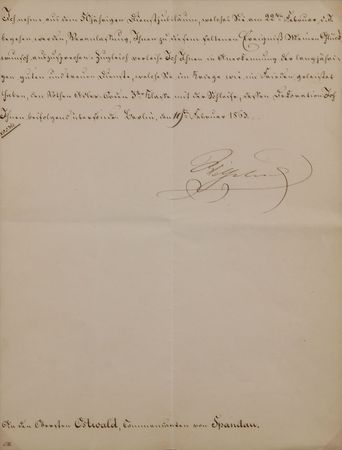 Ich nehme aus dem 50jährigen Dienstjubiläum, welches Sie am 22ten Februar d. J.
begehen werden, Veranlassung, Ihnen zu diesem seltenen Ereigniß Meinen Glück
wunsch auszusprechen. Zugleich verleihe Ich Ihnen in Anerkennung der langjähri
gen guten und treuen Dienste, welche Sie im Kriege wie im Frieden geleistet
haben, den Rothen Adler-Orden 3ter Klasse mit der Schleife, dessen Dekoration Ich
Ihnen beifolgend übersende. Berlin, den 19ten Februar 1863.
Wilhelm
An den Obersten Ostwald, Commandanten von Spandau.